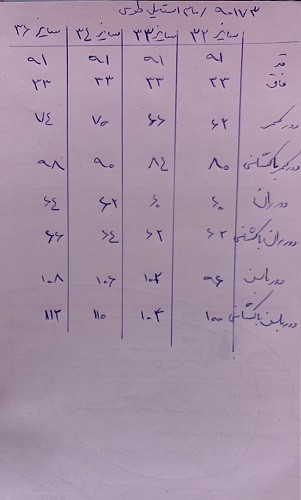 ۹۰۱۷۳ / مام استایل طوسی
سایز ۳۲ سایز ۳۳ سایز ۳۴ سایز ۳۶
قد ۹۱ ۹۱ ۹۱ ۹۱
فاق ۳۳ ۳۳ ۳۳ ۳۳
دور کمر ۶۲ ۶۶ ۷۰ ۷۴
دور کمر با کشسانی ۸۰ ۸۴ ۹۰ ۹۸
دور ران ۶۰ ۶۰ ۶۲ ۶۴
دور ران با کشسانی ۶۲ ۶۲ ۶۴ ۶۶
دور باسن ۹۶ ۱۰۲ ۱۰۶ ۱۰۸
دور باسن با کشسانی ۱۰۰ ۱۰۴ ۱۱۰ ۱۱۲